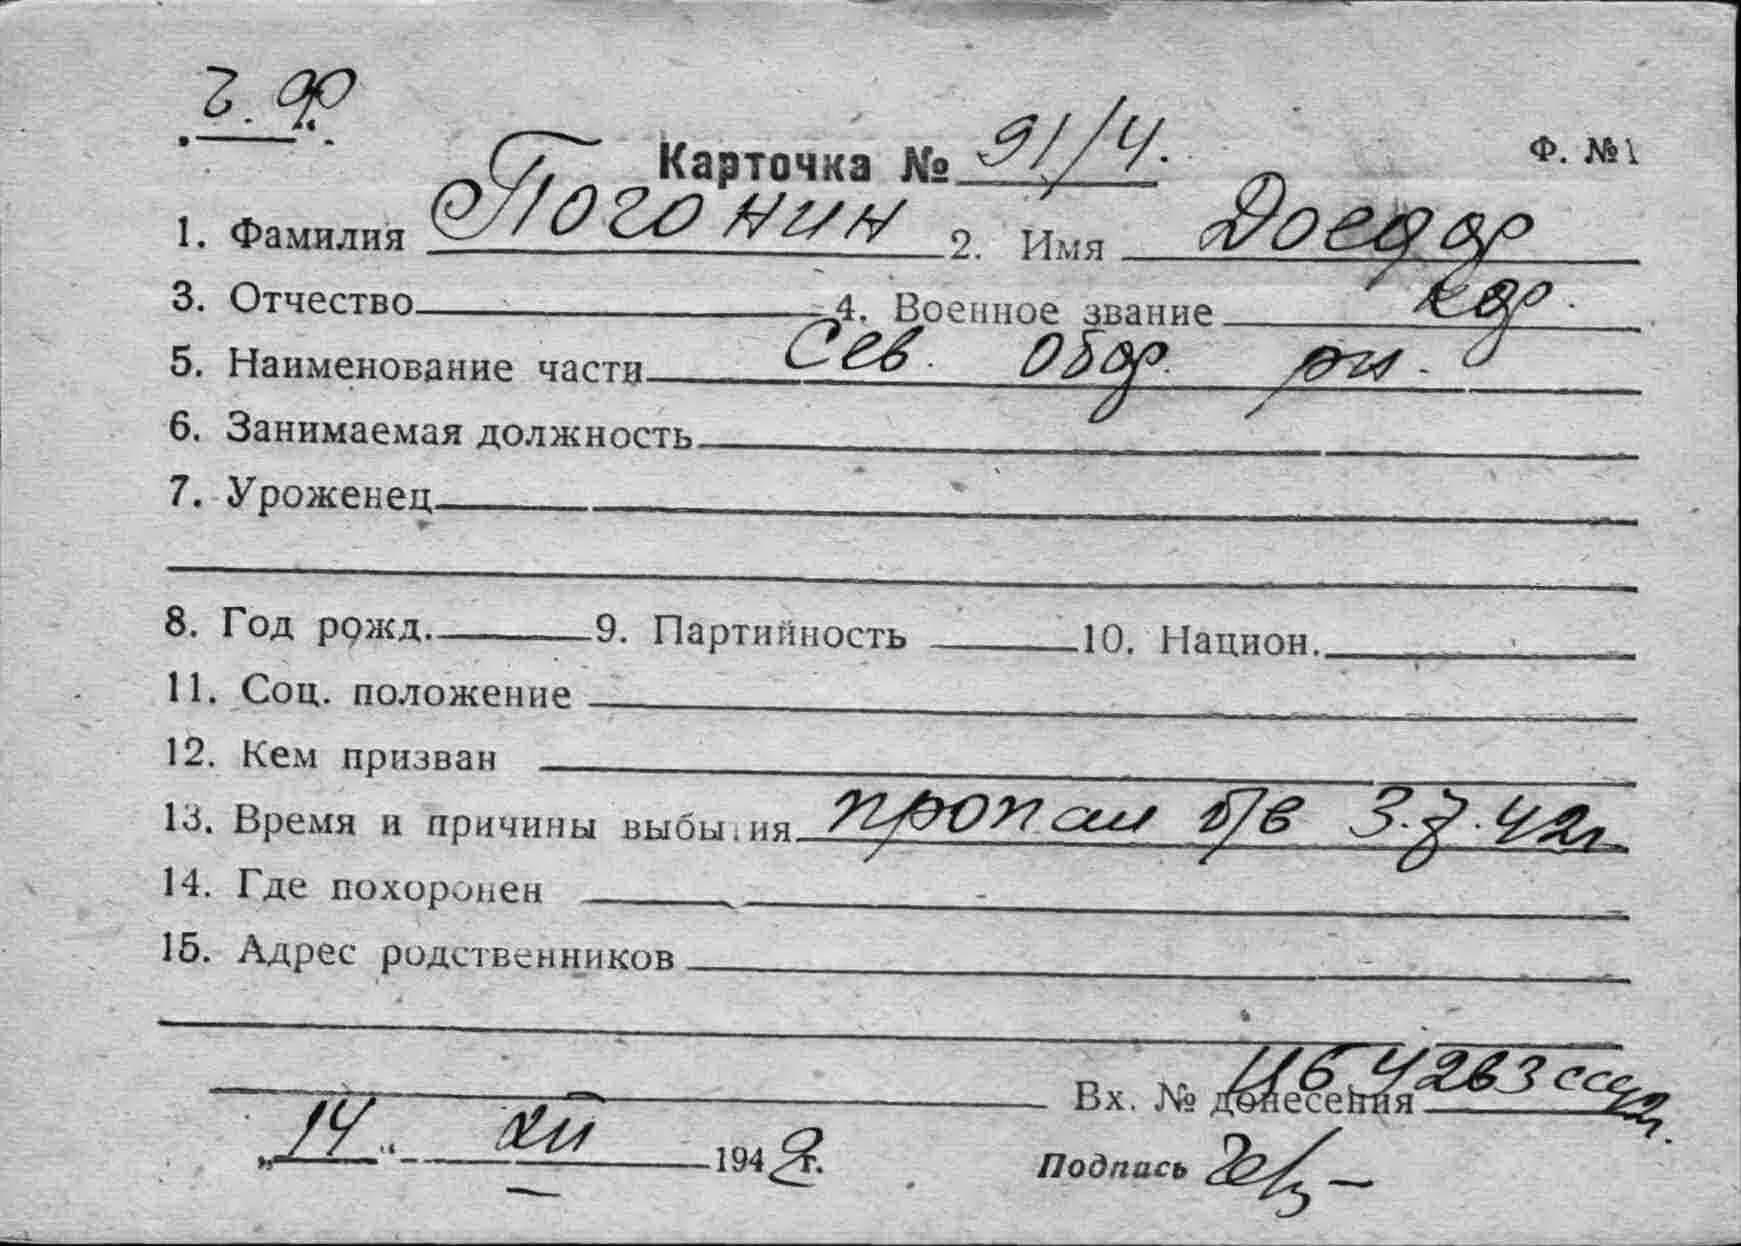 Г. Ф.
Карточка № 91/4. Ф. №1
1. Фамилия Погонин 2. Имя
3. Отчество 4. Военное звание кр.
5. Наименование части Сев. Обор. рн.
6. Занимаемая должность
7. Уроженец
8. Год рожд. 9. Партийность 10. Национ.
11. Соц. положение
12. Кем призван
13. Время и причины выбытия пропал б/в 3.7.42г
14. Где похоронен
15. Адрес родственников
Вх. № донесения
„14“ XII 1942 г. Подпись